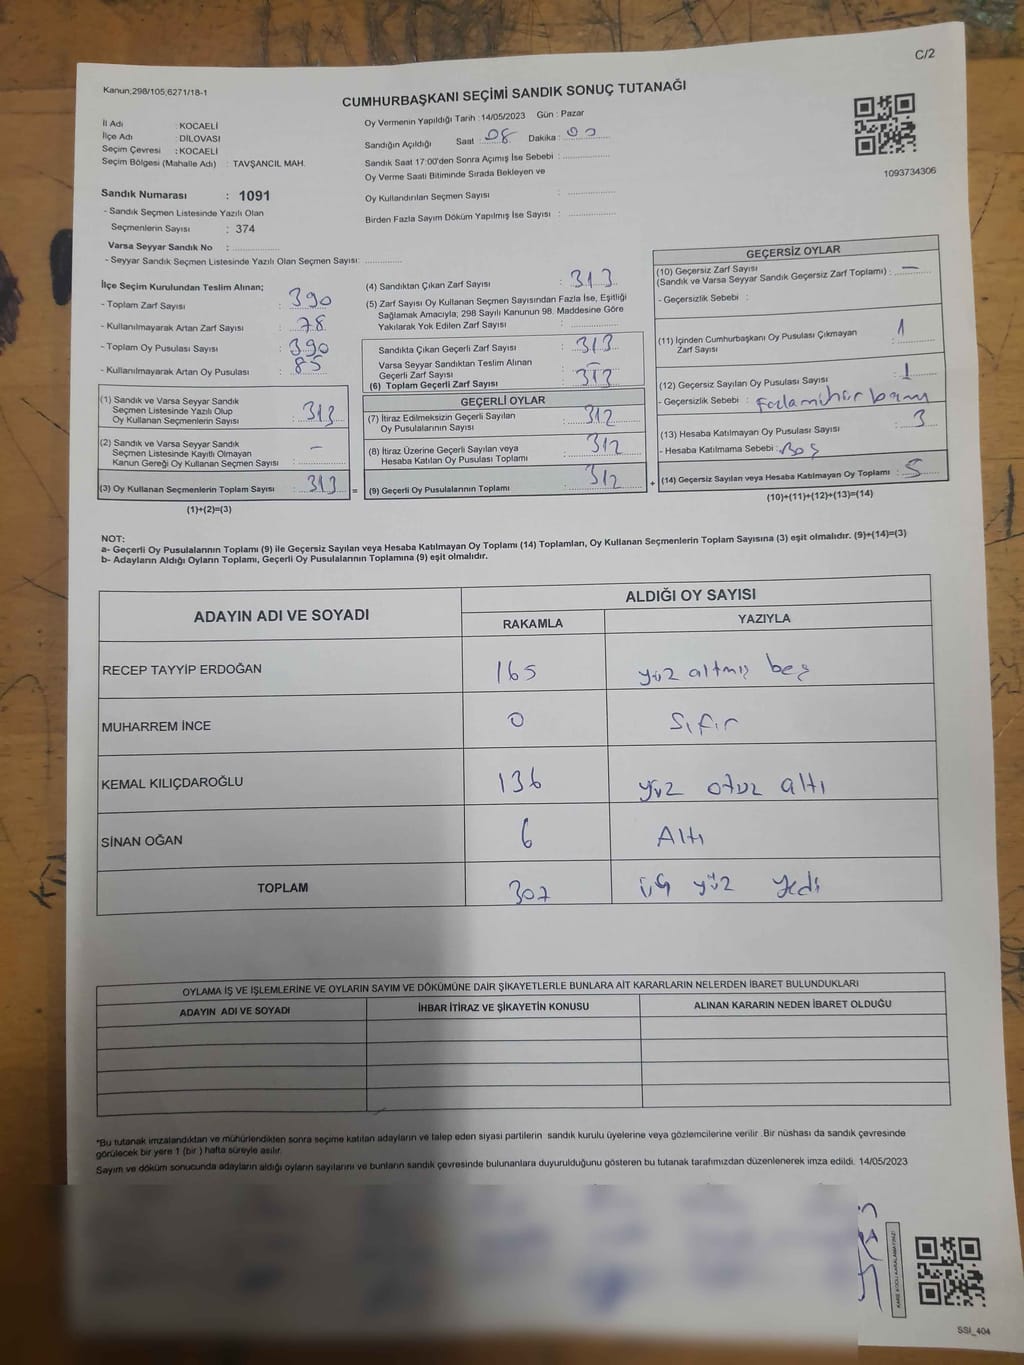 C/2
Kanun;298/105;6271/18-1
CUMHURBAŞKANI SEÇİMİ SANDIK SONUÇ TUTANAĞI
İl Adı : KOCAELİ
İlçe Adı : DİLOVASI
Seçim Çevresi : KOCAELİ
Seçim Bölgesi (Mahalle Adı) : TAVŞANCIL MAH.
Oy Vermenin Yapıldığı Tarih : 14/05/2023 Gün : Pazar
Sandığın Açıldığı Saat : 08 Dakika : 00
Sandık Saat 17:00'den Sonra Açımış İse Sebebi :
Oy Verme Saati Bitiminde Sırada Bekleyen ve
Oy Kullandırılan Seçmen Sayısı :
Birden Fazla Sayım Döküm Yapılmış İse Sayısı :
1093734306
Sandık Numarası : 1091
- Sandık Seçmen Listesinde Yazılı Olan
Seçmenlerin Sayısı : 374
Varsa Seyyar Sandık No :
- Seyyar Sandık Seçmen Listesinde Yazılı Olan Seçmen Sayısı:
İlçe Seçim Kurulundan Teslim Alınan;
- Toplam Zarf Sayısı : 390
- Kullanılmayarak Artan Zarf Sayısı : 78
- Toplam Oy Pusulası Sayısı : 390
- Kullanılmayarak Artan Oy Pusulası : 85
(1) Sandık ve Varsa Seyyar Sandık
Seçmen Listesinde Yazılı Olup
Oy Kullanan Seçmenlerin Sayısı : 313
(2) Sandık ve Varsa Seyyar Sandık
Seçmen Listesinde Kayıtlı Olmayan
Kanun Gereği Oy Kullanan Seçmen Sayısı : –
(3) Oy Kullanan Seçmenlerin Toplam Sayısı : 313
(1)+(2)=(3)
(4) Sandıktan Çıkan Zarf Sayısı : 313
(5) Zarf Sayısı Oy Kullanan Seçmen Sayısından Fazla İse, Eşitliği
Sağlamak Amacıyla; 298 Sayılı Kanunun 98. Maddesine Göre
Yakılarak Yok Edilen Zarf Sayısı :
Sandıkta Çıkan Geçerli Zarf Sayısı : 313
Varsa Seyyar Sandıktan Teslim Alınan
Geçerli Zarf Sayısı
(6) Toplam Geçerli Zarf Sayısı : 313
GEÇERLİ OYLAR
(7) İtiraz Edilmeksizin Geçerli Sayılan
Oy Pusulalarının Sayısı : 312
(8) İtiraz Üzerine Geçerli Sayılan veya
Hesaba Katılan Oy Pusulası Toplamı : 312
= (9) Geçerli Oy Pusulalarının Toplamı : 312
GEÇERSİZ OYLAR
(10) Geçersiz Zarf Sayısı
(Sandık ve Varsa Seyyar Sandık Geçersiz Zarf Toplamı) : –
- Geçersizlik Sebebi :
(11) İçinden Cumhurbaşkanı Oy Pusulası Çıkmayan
Zarf Sayısı : 1
(12) Geçersiz Sayılan Oy Pusulası Sayısı : 1
- Geçersizlik Sebebi :
(13) Hesaba Katılmayan Oy Pusulası Sayısı : 3
- Hesaba Katılmama Sebebi : Boş
+ (14) Geçersiz Sayılan veya Hesaba Katılmayan Oy Toplamı : 5
(10)+(11)+(12)+(13)=(14)
NOT:
a- Geçerli Oy Pusulalarının Toplamı (9) ile Geçersiz Sayılan veya Hesaba Katılmayan Oy Toplamı (14) Toplamları, Oy Kullanan Seçmenlerin Toplam Sayısına (3) eşit olmalıdır. (9)+(14)=(3)
b- Adayların Aldığı Oyların Toplamı, Geçerli Oy Pusulalarının Toplamına (9) eşit olmalıdır.
ADAYIN ADI VE SOYADI
ALDIĞI OY SAYISI
RAKAMLA YAZIYLA
RECEP TAYYİP ERDOĞAN 165 yüz altmış beş
MUHARREM İNCE 0 Sıfır
KEMAL KILIÇDAROĞLU 136 yüz otuz altı
SİNAN OĞAN 6 Altı
TOPLAM 307 üç yüz yedi
OYLAMA İŞ VE İŞLEMLERİNE VE OYLARIN SAYIM VE DÖKÜMÜNE DAİR ŞİKAYETLERLE BUNLARA AİT KARARLARIN NELERDEN İBARET BULUNDUKLARI
ADAYIN ADI VE SOYADI İHBAR İTİRAZ VE ŞİKAYETİN KONUSU ALINAN KARARIN NEDEN İBARET OLDUĞU
*Bu tutanak imzalandıktan ve mühürlendikten sonra seçime katılan adayların ve talep eden siyasi partilerin sandık kurulu üyelerine veya gözlemcilerine verilir .Bir nüshası da sandık çevresinde
görülecek bir yere 1 (bir ) hafta süreyle asılır.
Sayım ve döküm sonucunda adayların aldığı oyların sayılarını ve bunların sandık çevresinde bulunanlara duyurulduğunu gösteren bu tutanak tarafımızdan düzenlenerek imza edildi. 14/05/2023
KARE KODU KARALAMAYINIZ!
SSI_404